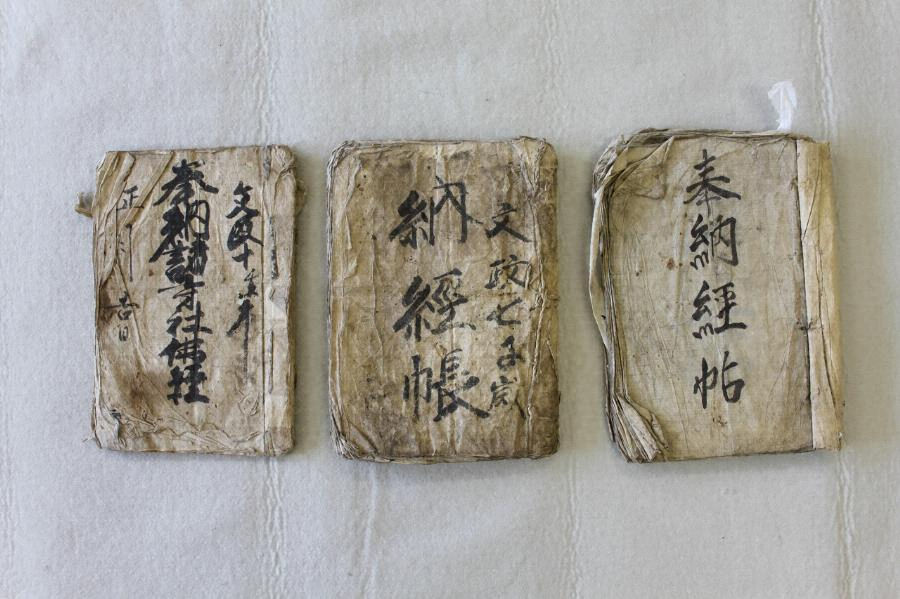 文政十年
奉納諸寺社佛経
正月吉日
文政七子歳
納經帳
奉納経帖